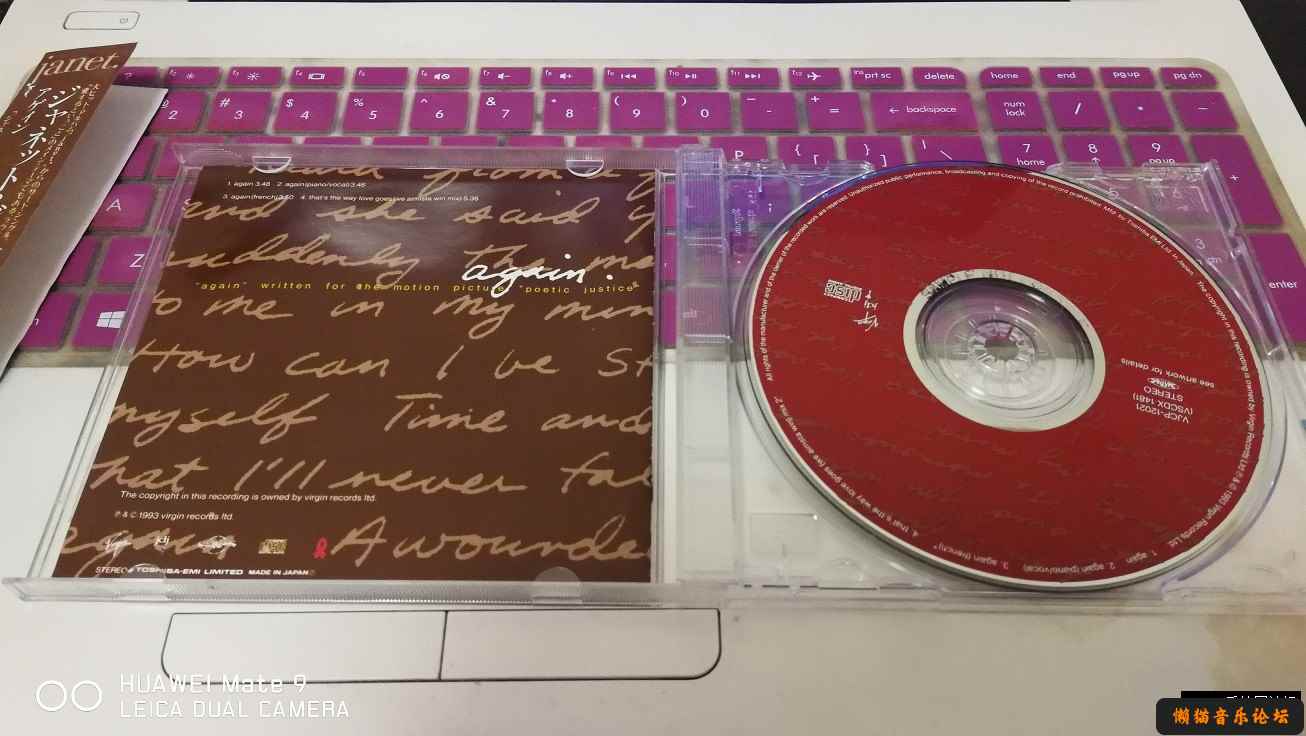 janet.
ジャネット
アゲイン
f2
f3
f4
f5
f6
f7
f8
f9
f10
f11
f12
ins prt sc
delete
home
end
pg up
pg dn
2
# 3
$ 4
% 5
^ 6
& 7
* 8
( 9
) 0
- -
+ =
← backspace
num lock
/
*
-
P
{ [
} ]
| \
7 home
8
9 pg up
+
A
Z
3
enter
1. again 3.46 2. again(piano/vocal)3.46
3. again(french)3.50 4. that's the way love goes(we aimsta win mix) 5.36
and she said y
suddenly the me
again.
"again" written for the motion picture "poetic justice"
to me in my min
How can I be st
myself Time and
hat I'll never fal
The copyright in this recording is owned by virgin records ltd.
℗ & © 1993 virgin records ltd.
A wounde
STEREO TOSHIBA-EMI LIMITED MADE IN JAPAN
All rights of the manufacturer and of the owner of the recorded work are reserved. Unauthorized public performance, broadcasting and copying of the record prohibited. Mfd. by Toshiba-EMI Ltd. in Japan. The copyright in this recording is owned by Virgin Records Ltd ℗ & © 1993 Virgin Records Ltd.
disc
Virgin
see artwork for details
STEREO
(VSCDX 1481)
VJCP-12021
1. again 2. again (piano/vocal) 3. again (french)* 4. that's the way love goes (we aimsta win) mix 2*
HUAWEI Mate 9
LEICA DUAL CAMERA
懒猫音乐论坛